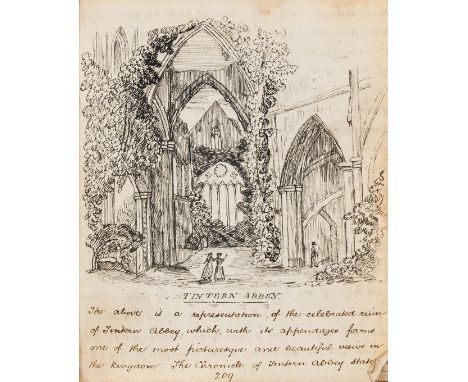 TINTERN ABBEY
The above is a representation of the celebrated ruin
of Tintern Abbey which, with its appendages forms
one of the most picturesque and beautiful views in
the kingdom. The Chronicle of Tintern Abbey state
209